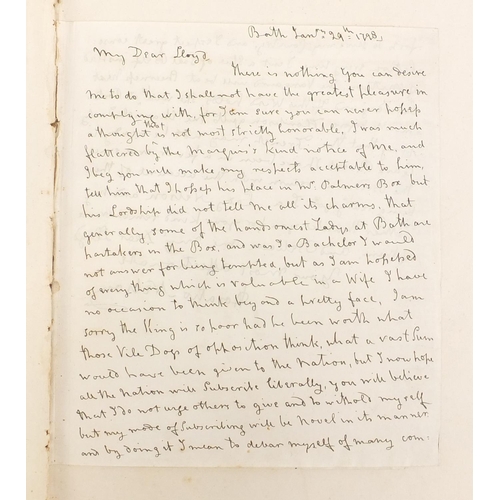 Bath Jany. 29th. 1798,
My Dear Lloyd
There is nothing you can desire
me to do that I shall not have the greatest pleasure in
complying with, for I am sure you can never possess
a thought that is not most strictly honorable, I was much
flattered by the Marquis's kind notice of me, and
I beg you will make my respects acceptable to him,
tell him that I possess his place in Mr. Palmers Box but
his Lordship did not tell me all its charms, that
generally some of the handsomest Ladys at Bath are
partakers in the Box, and was I a Bachelor I would
not answer for being tempted, but as I am possessed
of every thing which is valuable in a Wife I have
no occasion to think beyond a pretty face, I am
sorry the King is so poor had he been worth what
those Vile Dogs of opposition think, what a vast Sum
would have been given to the Nation, but I now hope
all the Nation will Subscribe liberally, you will believe
that I do not urge others to give and to withold myself
but my mode of Subscribing will be novel in its manner
and by doing it I mean to debar myself of many com: